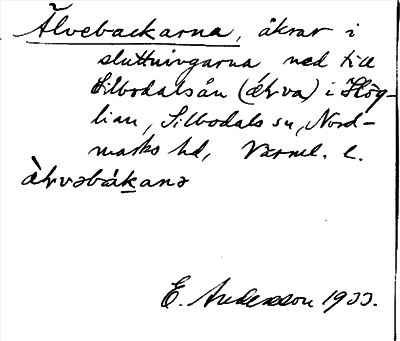 Älvebackarna, åkrar i
sluttningarna ned till
Silbodalsån (älva) i Hög-
lian, Silbodals sn, Nord-
marks hd, Värml. l.
E. Andersson 1933.